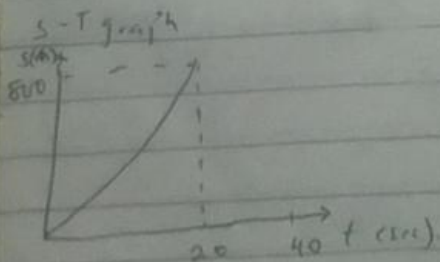 S-T graph
S(m)
800
20 40 t (sec)